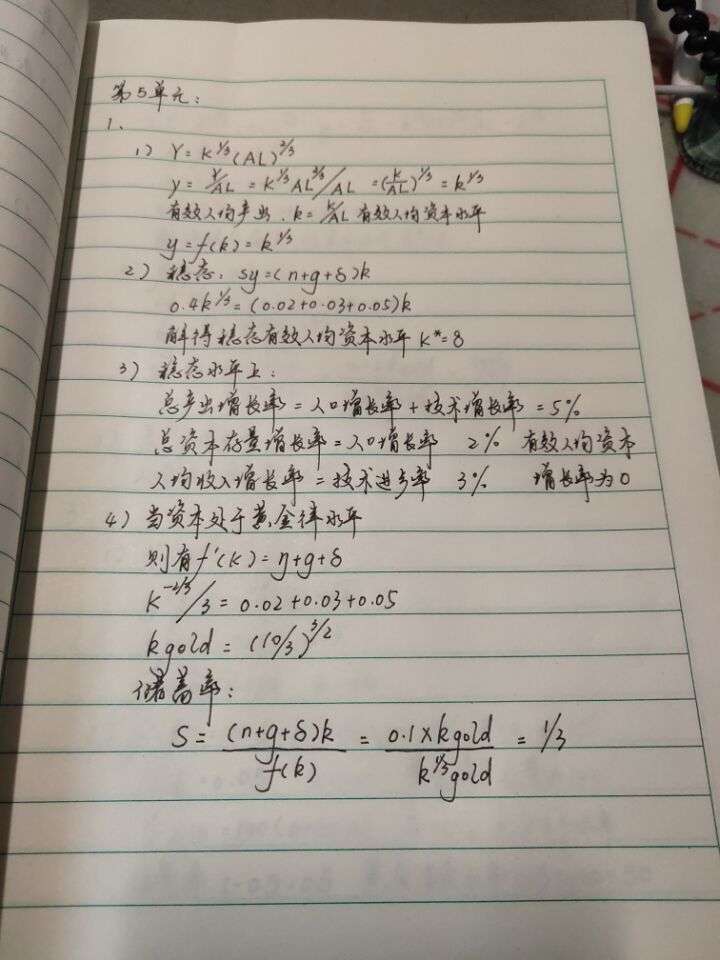 第5单元:
1、
1) Y=K^{1/3}(AL)^{2/3}
y=Y/AL=K^{1/3}AL^{2/3}/AL=(K/AL)^{1/3}=k^{1/3}
有效人均产出.k=K/AL 有效人均资本水平
y=f(k)=k^{1/3}
2) 稳态:sy=(n+g+δ)k
0.4k^{1/3}=(0.02+0.03+0.05)k
解得稳态有效人均资本水平 K*=8
3) 稳态水平上:
总产出增长率=人口增长率+技术增长率=5%
总资本存量增长率=人口增长率 2% 有效人均资本
人均收入增长率=技术进步率 3% 增长率为0
4) 当资本处于黄金律水平
则有f'(k)=n+g+δ
K^{-2/3}/3=0.02+0.03+0.05
kgold=(10/3)^{3/2}
储蓄率:
S=(n+g+δ)k/f(k)=0.1×kgold/k^{1/3}gold=1/3